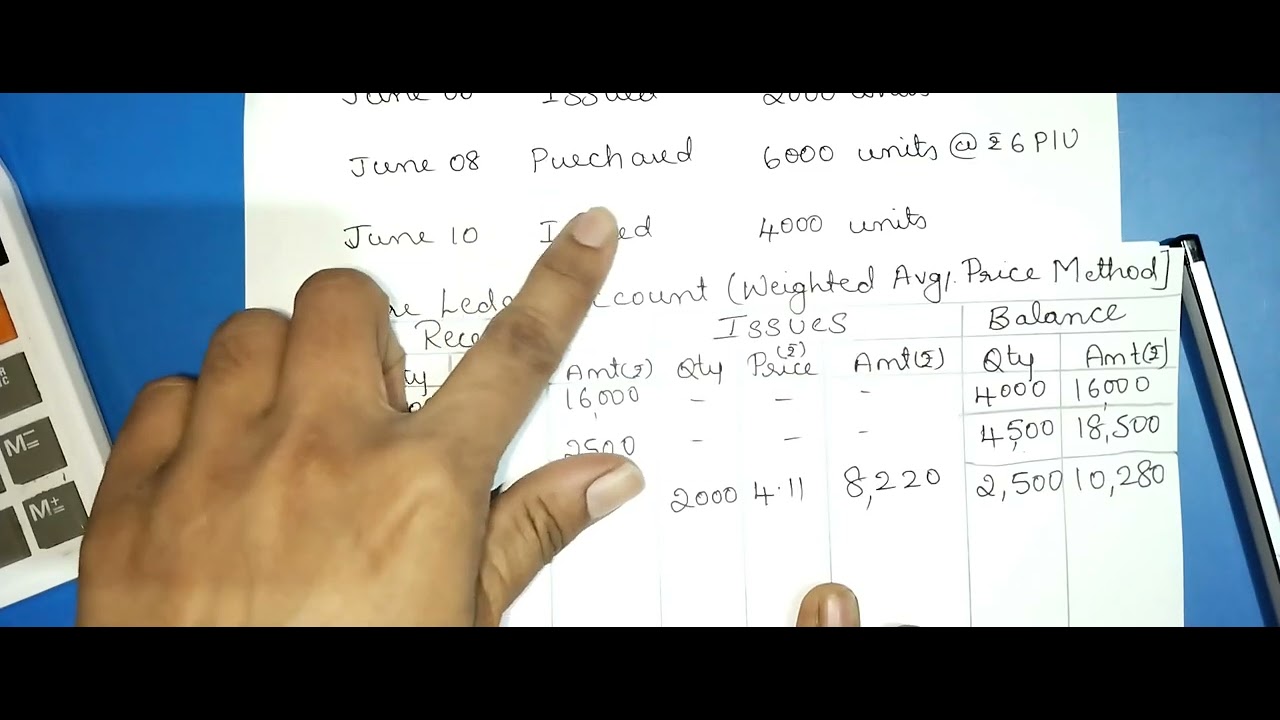 June Issued 2000 units
June 08 Purchased 6000 units @ ₹6 P/U
June 10 4000 units
Account (Weighted Avg. Price Method]
Issues Balance
Amt(₹) Qty Price (₹) Amt(₹) Qty Amt(₹)
16,000 - - - 4000 16,000
2500 - - - 4,500 18,500
2000 4.11 8,220 2,500 10,280
M=
M±